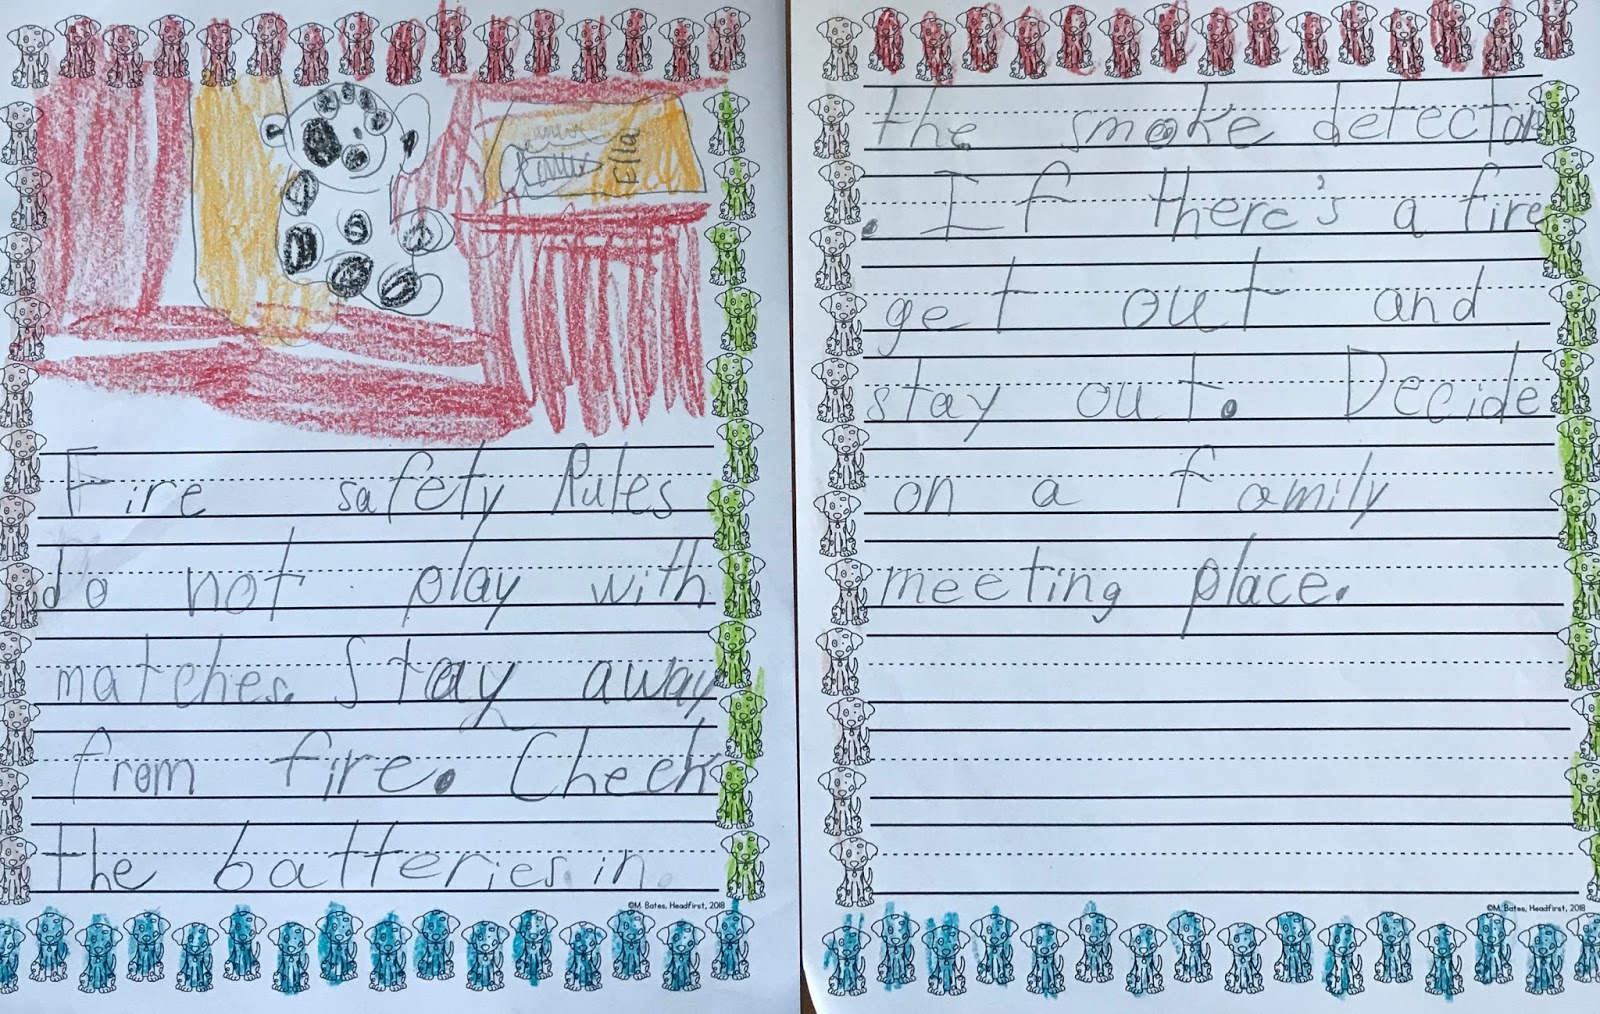 Ella
Fire safety Rules
do not play with
matches. Stay away
from fire. Check
the batteries in
©M. Bates, Headfirst, 2018
the smoke detector
. If there's a fire
get out and
stay out. Decide
on a family
meeting place.
©M. Bates, Headfirst, 2018